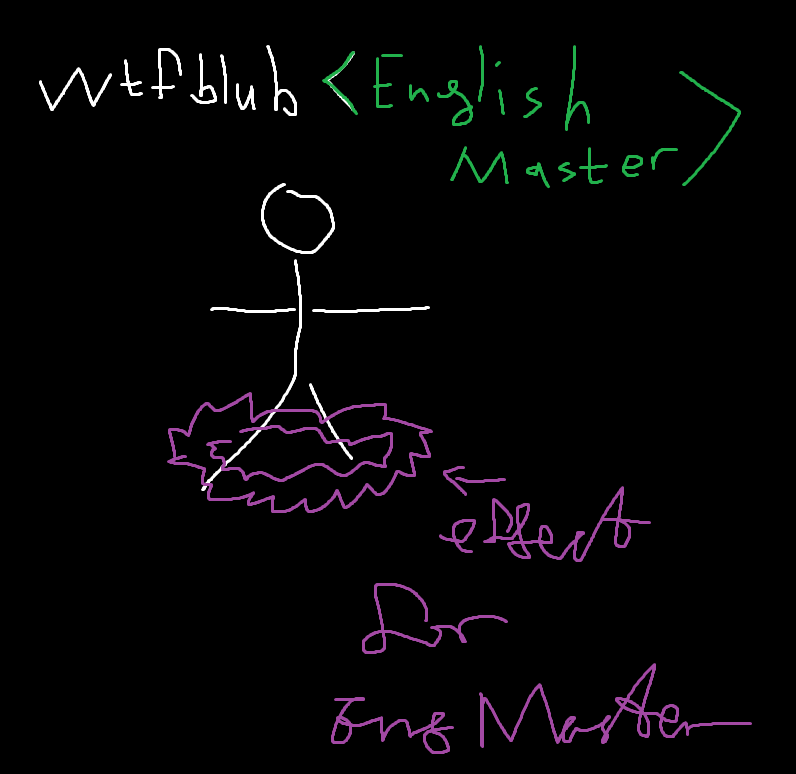 wtfblub <English
Master>
effect
for
Eng Master